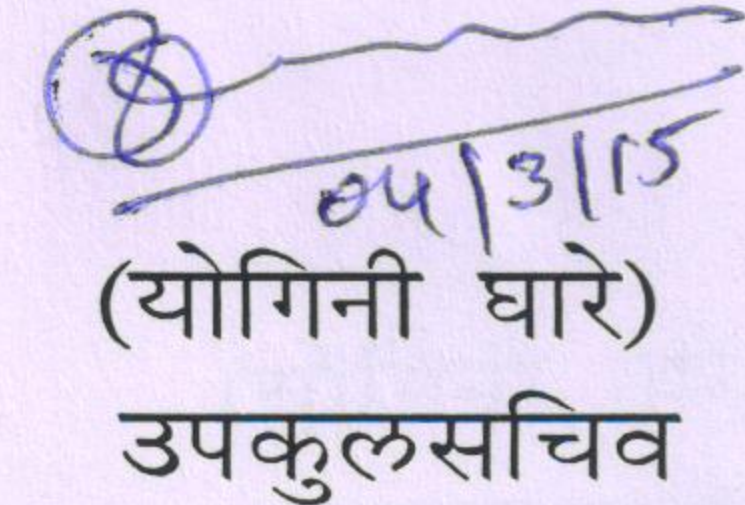 04/3/15
(योगिनी घारे)
उपकुलसचिव